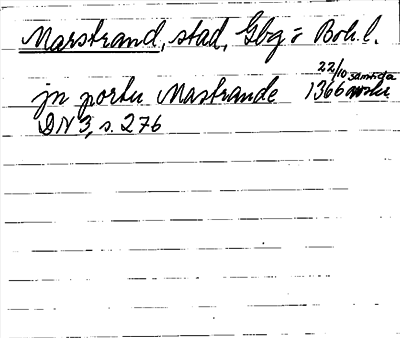 Marstrand, stad, Gbg o Boh. l.
jn portu Mastrande 22/10 1366 samtida avskr
DN 3, s. 276